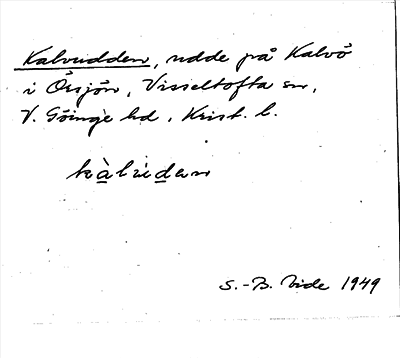 Kalvudden, udde på Kalvö
i Örsjön, Visseltofta sn,
V. Göinge hd, Krist. l.
S.-B. Vide 1949